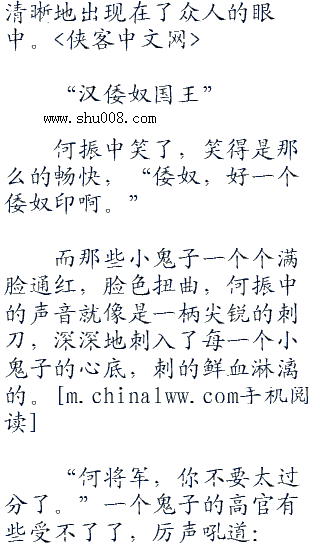 清晰地出现在了众人的眼
中。<侠客中文网>
“汉倭奴国王”
www.shu008.com
何振中笑了，笑得是那
么的畅快，“倭奴，好一个
倭奴印啊。”
而那些小鬼子一个个满
脸通红，脸色扭曲，何振中
的声音就像是一柄尖锐的刺
刀，深深地刺入了每一个小
鬼子的心底，刺的鲜血淋漓
的。[m.china1ww.com手机阅
读]
“何将军，你不要太过
分了。”一个鬼子的高官有
些受不了了，厉声吼道：